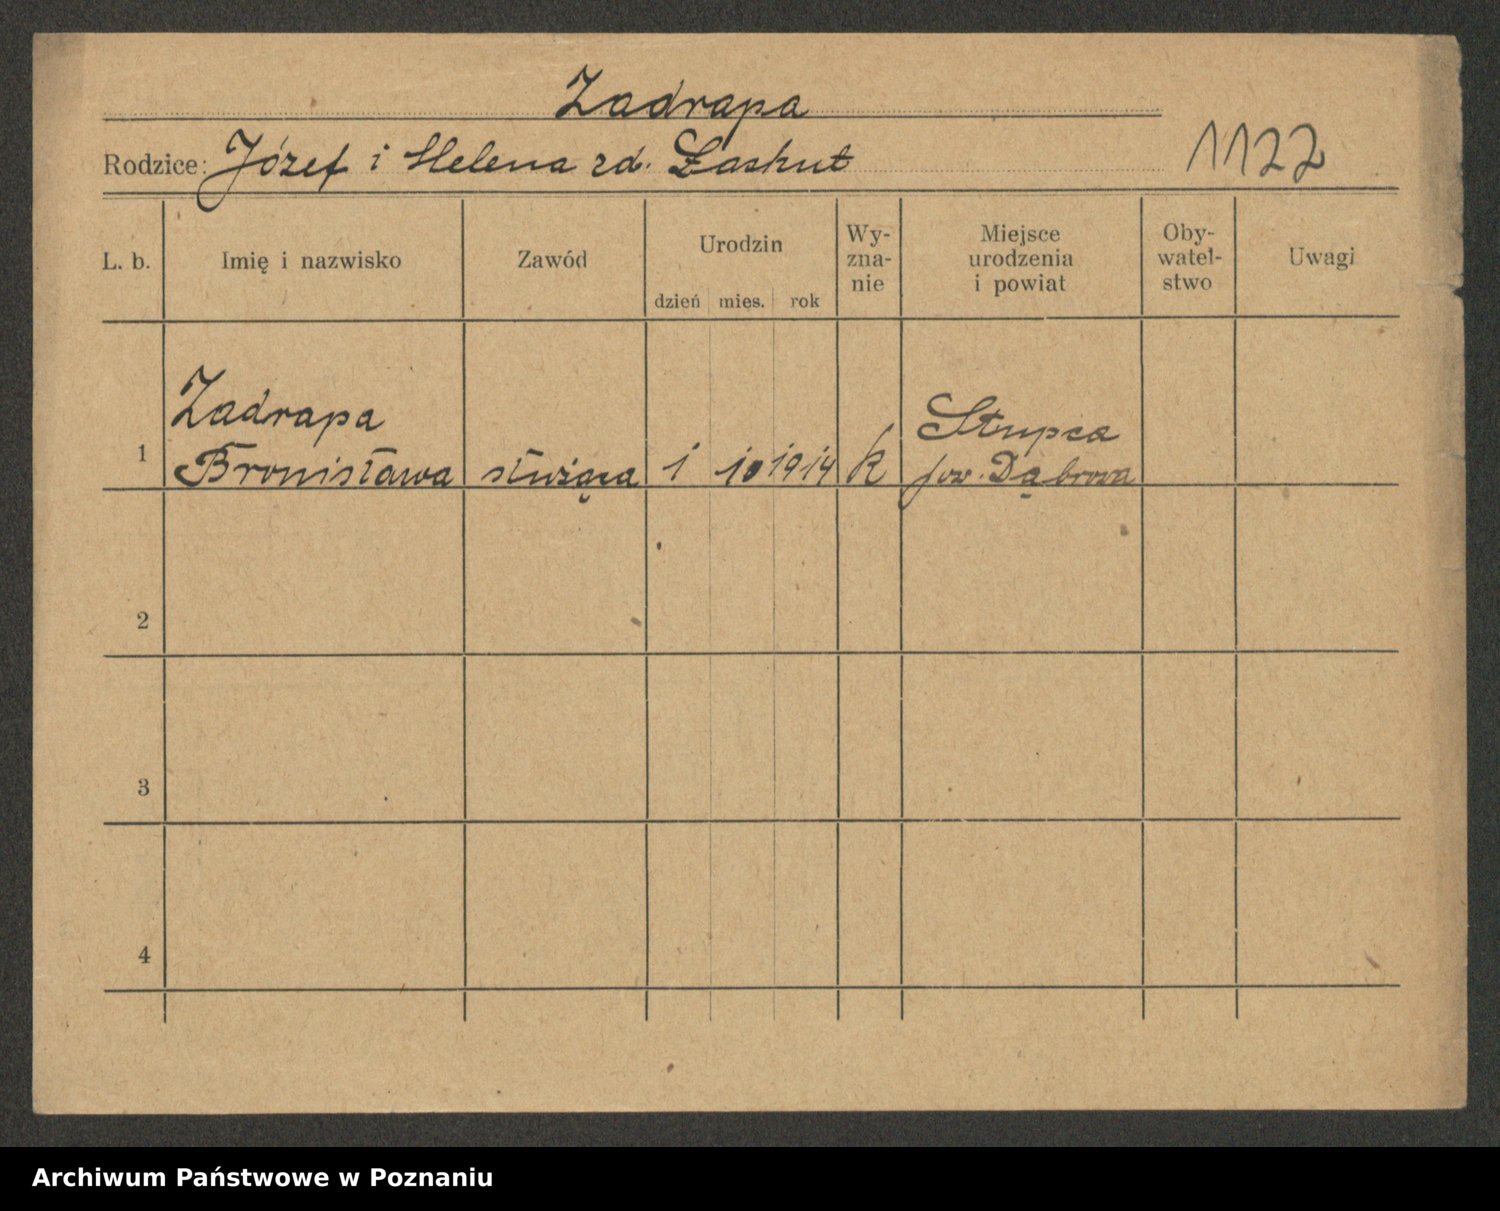 Zadrapa
Rodzice: Józef i Helena zd. Łaskut
1122
L. b. Imię i nazwisko Zawód Urodzin dzień mies. rok Wy-zna-nie Miejsce urodzenia i powiat Oby-watel-stwo Uwagi
Zadrapa
1 Bronisława służąca 1 10 1914 k Słupca
pow. Dąbrowa
2
3
4
Archiwum Państwowe w Poznaniu